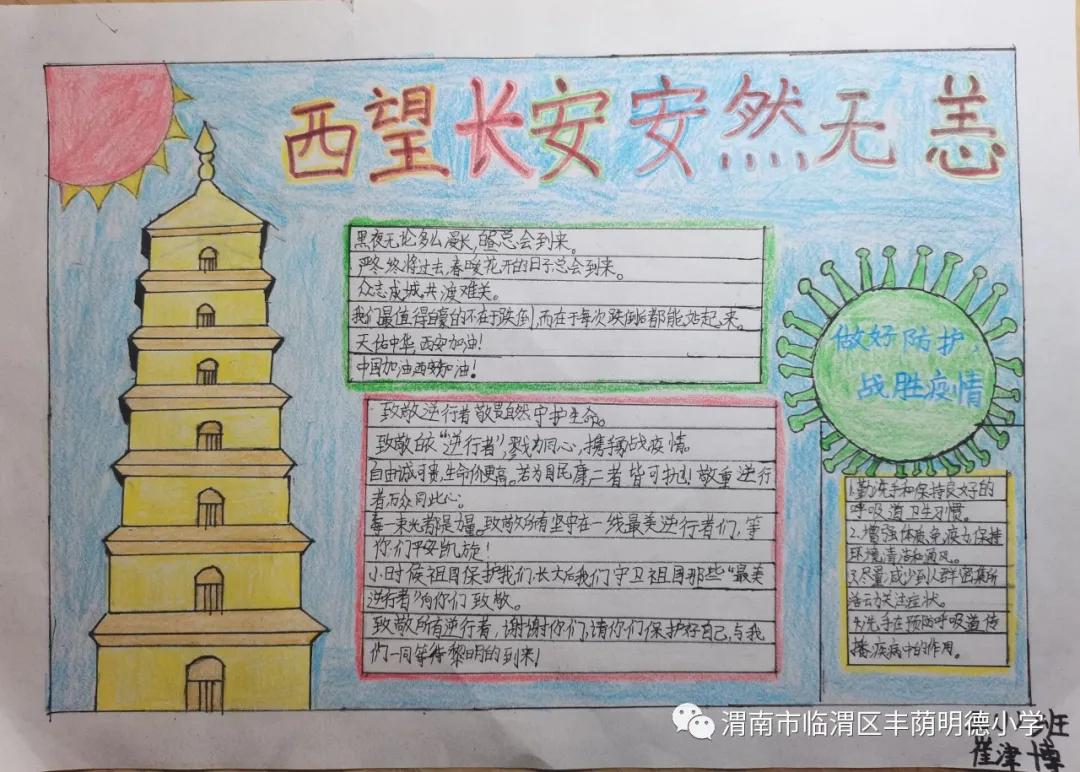 西望长安安然无恙
黑夜无论多么漫长,总会到来。
严冬终将过去,春暖花开的日子总会到来。
众志成城,共渡难关。
我们最值得自豪的不在于跌倒,而在于每次跌倒后都能站起来。
天佑中华,西安加油!
中国加油西安加油!
致敬逆行者敬畏自然守护生命。
致敬白衣“逆行者”,戮力同心,携手战疫情。
自由诚可贵,生命价更高。若为国民康二者皆可抛!敬重逆行
者万众同此心。
每一束光都是力量。致敬所有坚守在一线最美逆行者们,等
你们平安凯旋!
小时候祖国保护我们,长大后我们守卫祖国那些“最美
逆行者”向你们致敬。
致敬所有逆行者,谢谢你们,请你们保护好自己,与我
们一同等待黎明的到来!
做好防护,
战胜疫情
1.勤洗手和保持良好的
呼吸道卫生习惯。
2.增强体质,免疫力,保持
环境清洁和通风。
3.尽量减少到人群密集所
活动关注症状。
4.洗手在预防呼吸道传
播疾病中的作用。
渭南市临渭区丰荫明德小学
班
崔津博